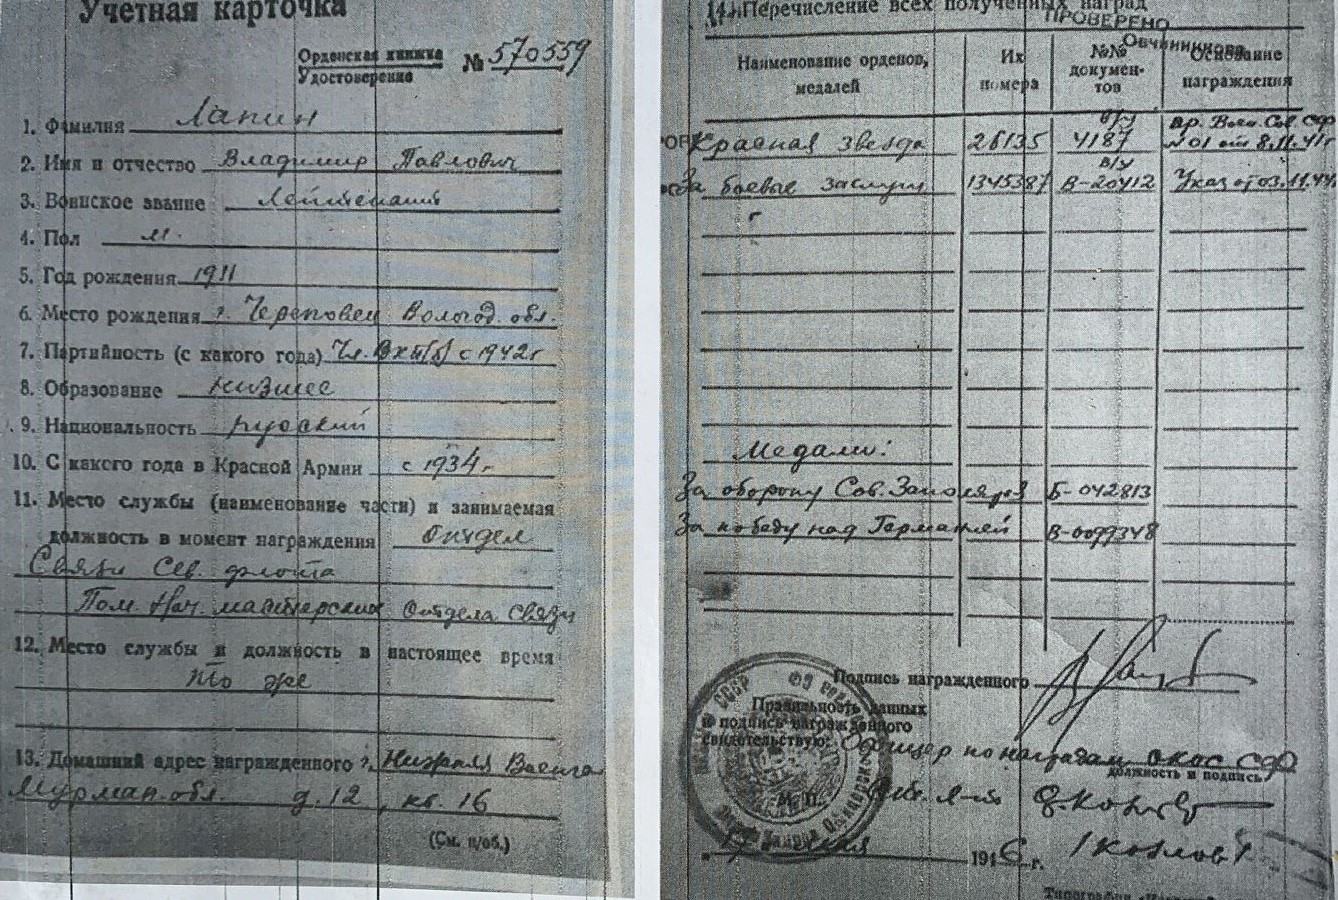 Учетная карточка
Орденская книжка
Удостоверение
№ 570559
1. Фамилия Лапин
2. Имя и отчество Владимир Павлович
3. Воинское звание Лейтенант
4. Пол м.
5. Год рождения 1911
6. Место рождения г. Череповец Вологод. обл.
7. Партийность (с какого года) Чл. ВКП(б) с 1942г
8. Образование низшее
9. Национальность русский
10. С какого года в Красной Армии с 1934г.
11. Место службы (наименование части) и занимаемая
должность в момент награждения Отдел
Связи Сев. флота
Пом. Нач. мастерских Отдела Связи
12. Место службы и должность в настоящее время
то же
13. Домашний адрес награжденного г. Нижняя Ваенга
Мурман. обл. д. 12, кв. 16
(См. п/об.)
14. Перечисление всех полученных наград
ПРОВЕРЕНО
Овчинникова
Наименование орденов, медалей
Их номера
№№ документов
Основание награждения
Красная звезда 26135 в/у 4187 Пр. Воен. Сов. СФ № 01 от 8.11.41г
За боевые заслуги 1345387 в/у В-20412 Указ от 03.11.44
Медали:
За оборону Сов. Заполярья Б-042813
За победу над Германией В-0099348
Подпись награжденного
Правильность данных
и подпись награжденного
свидетельствую: Офицер по наградам ОКОС СФ
должность и подпись
М. П.
194 6 г. /Козлов/